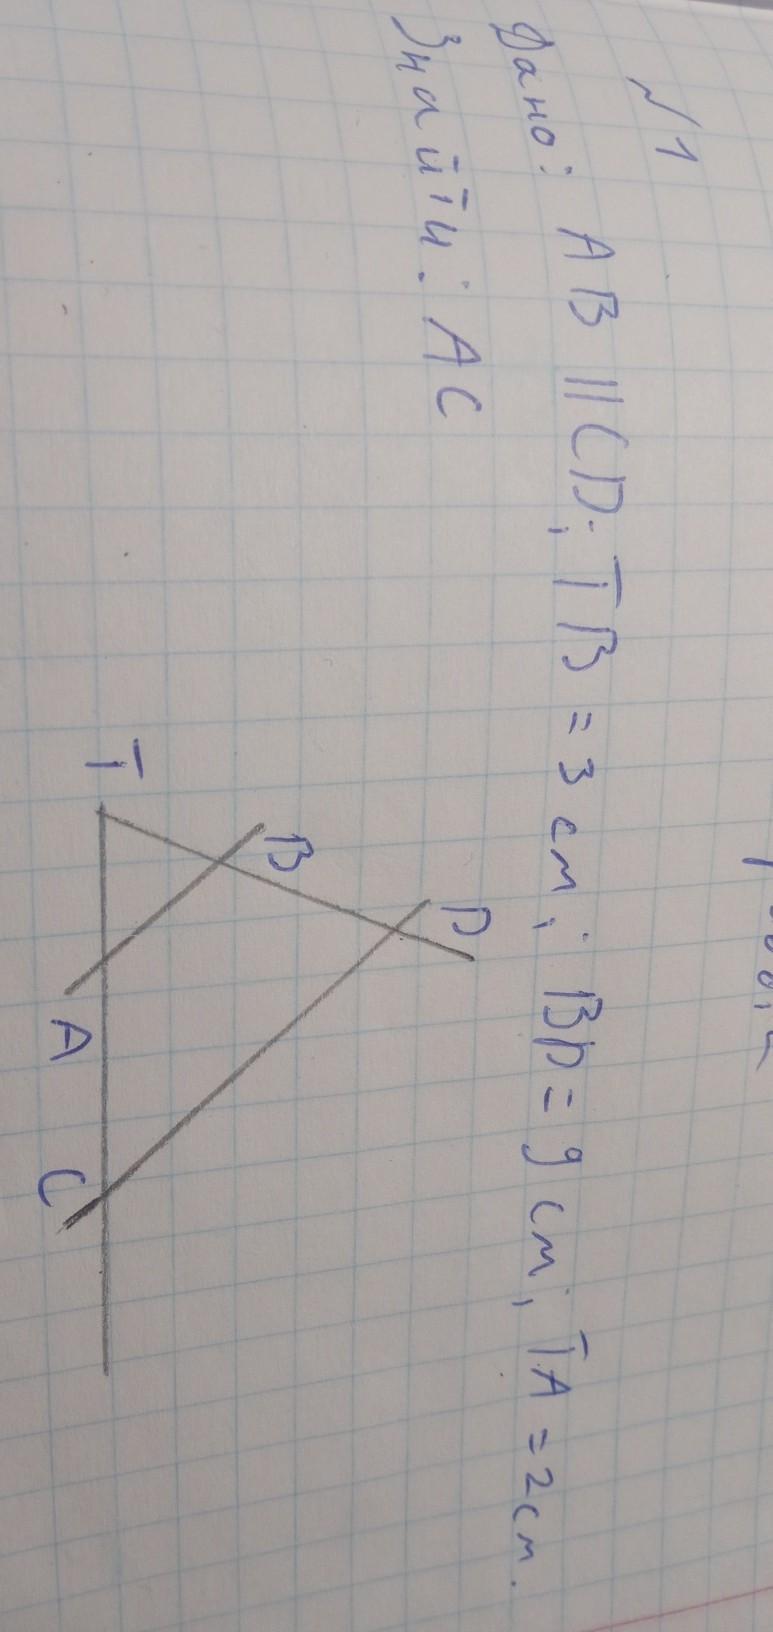 №1
Дано: AB || CD; TB = 3 см; BD = 9 см; TA = 2 см.
Знайти: AC
T
B
D
A
C